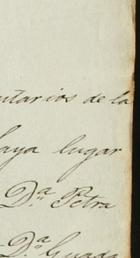 ntarios de la
haya lugar
D.ª Petra
D.ª Guada